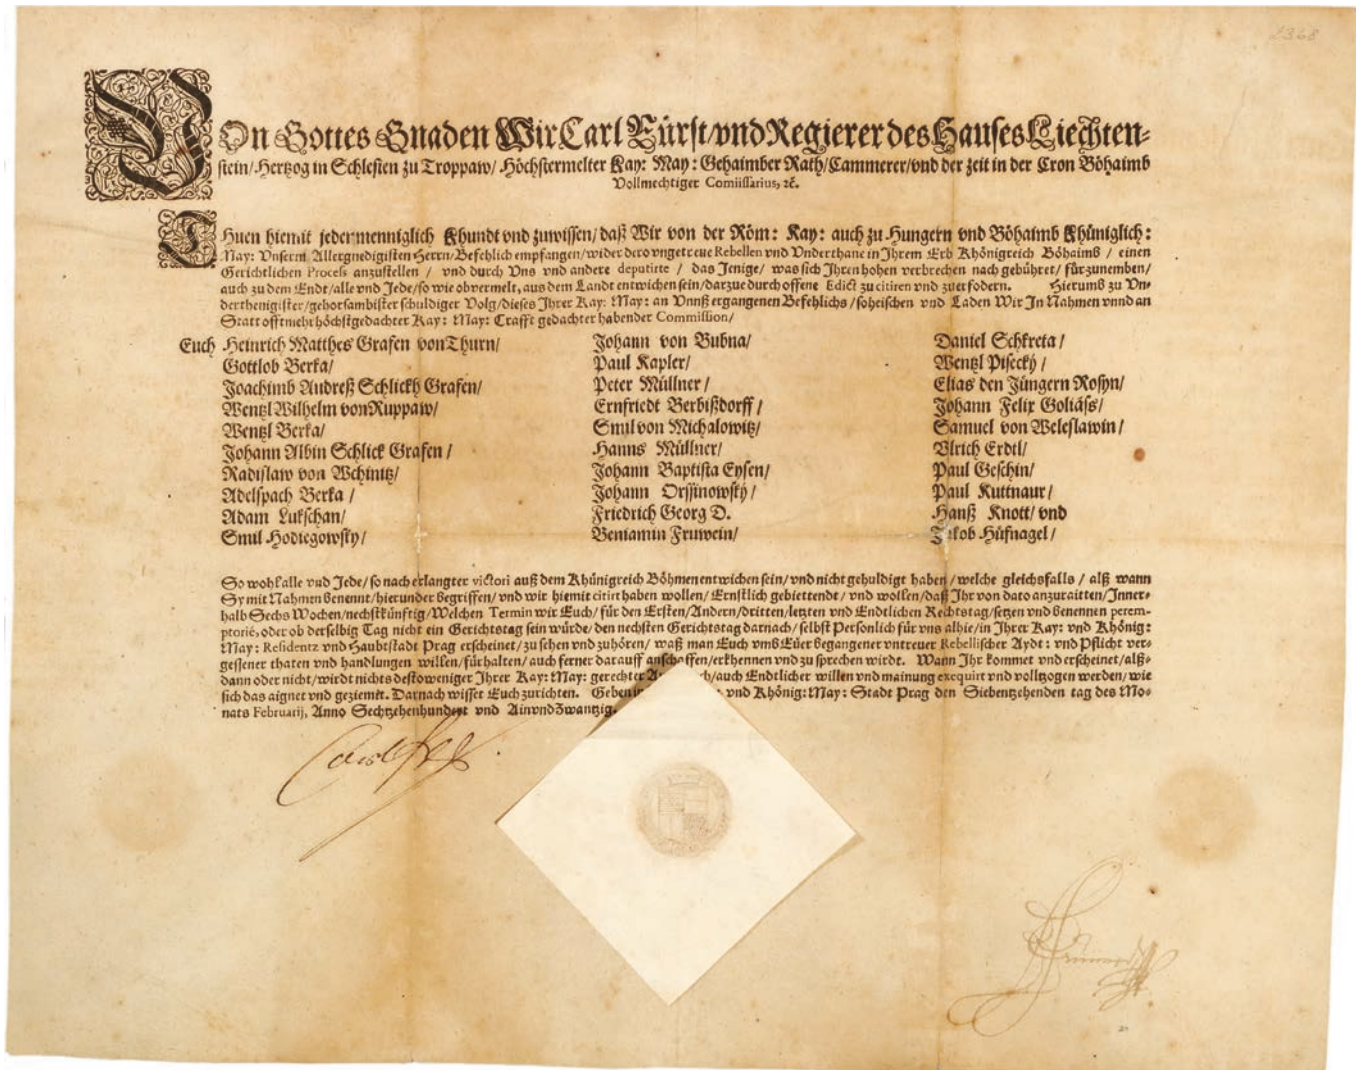 2368
VOn Gottes Gnaden Wir Carl Fürst/vnd Regierer des Hauses Liechten-
stein/Hertzog in Schlesien zu Troppaw/Höchstermelter Kay: May: Gehaimber Rath/Cammerer/vnd der zeit in der Cron Böhaimb
Vollmechtiger Comiissarius, ꝛc.
THuen hiemit jedermenniglich Khundt vnd zuwissen/daß Wir von der Röm: Kay: auch zu Hungern vnd Böhaimb Khüniglich:
May: Vnserm Allergnedigisten Herrn/Befehlich empfangen/wider dero vngetreue Rebellen vnd Vnderthane in Jhrem Erb Khönigreich Böhaimb / einen
Gerichtlichen Process anzustellen / vnd durch Vns vnd andere deputirte / das Jenige/ was sich Jhren hohen verbrechen nach gebühret/ fürzunemben/
auch zu dem Endt/alle vnd Jede/so wie obvermelt, aus dem Landt entwichen sein/darzue durch offene Edict zu citiren vnd zuerfodern. Hierumb zu Vn-
derthenigister/gehorsambister schuldiger Volg/dieses Jhrer Kay: May: an Vnnß ergangenen Befehlichs/so heischen vnd Laden Wir Jn Nahmen vnnd an
Statt offtmehr höchstgedachter Kay: May: Crafft gedachter habender Commission/
Euch Heinrich Matthes Grafen von Thurn/
Gottlob Berka/
Joachimb Andreß Schlickh Grafen/
Wentzl Wilhelm von Ruppaw/
Wentzl Berka/
Johann Albin Schlick Grafen/
Radislaw von Wchinitz/
Adelspach Berka /
Adam Lukschan/
Smil Hodiegowsky/
Johann von Bubna/
Paul Kapler/
Peter Müllner/
Ernfriedt Berbißdorff /
Smil von Michalowitz/
Hanns Müllner/
Johann Baptista Eysen/
Johann Orssinowský/
Friedrich Georg D.
Beniamin Fruwein/
Daniel Schkreta/
Wentzl Pisecký/
Elias den Jüngern Rosyn/
Johann Felix Goliäss/
Samuel von Weleslawin/
Vlrich Erdtl/
Paul Geschin/
Paul Kuttnaur/
Hanß Knott/ vnd
Jakob Hüfnagel/
So wohl alle vnd Jede/so nach erlangter victori auß dem Khünigreich Böhmen entwichen sein/vnd nicht gehuldigt haben/welche gleichsfalls / alß wann
Sy mit Nahmen benennt/hierunder begriffen/vnd wir hiemit citirt haben wollen/Ernstlich gebiettendt/vnd wollen/daß Jhr von dato anzuraitten/Inner-
halb Sechs Wochen/nechstkünftig/Welchen Termin wir Euch/ für den Ersten/Andern/dritten/letzten vnd Endtlichen Rechtstag/setzen vnd benennen perem-
ptoriè, oder ob derselbig Tag nicht ein Gerichtstag sein würde/den nechsten Gerichtstag darnach/selbst Persönlich für vns alhie/in Jhrer Kay: vnd Khönig:
May: Residentz vnd Haubtstadt Prag erscheinet/zu sehen vnd zuhören/ waß man Euch vmb Eüer begangener vntreuer Rebellischer Aydt: vnd Pflicht ver-
gessener thaten vnd handlungen willen/fürhalten/auch ferner darauff anschaffen/erkhennen vnd zu sprechen wirdt. Wann Jhr kommet vnd erscheinet/alß-
dann oder nicht/wirdt nichts destoweniger Jhrer Kay: May: gerechter /auch Endtlicher willen vnd mainung exequirt vnd volltzogen werden/wie
sich das aignet vnd geziemet. Darnach wisset Euch zurichten. Geben in vnd Khönig: May: Stadt Prag den Siebentzehenden tag des Mo-
nats Februarij, Anno Sechtzehenhundert vnd Ain vnd Zwantzig.